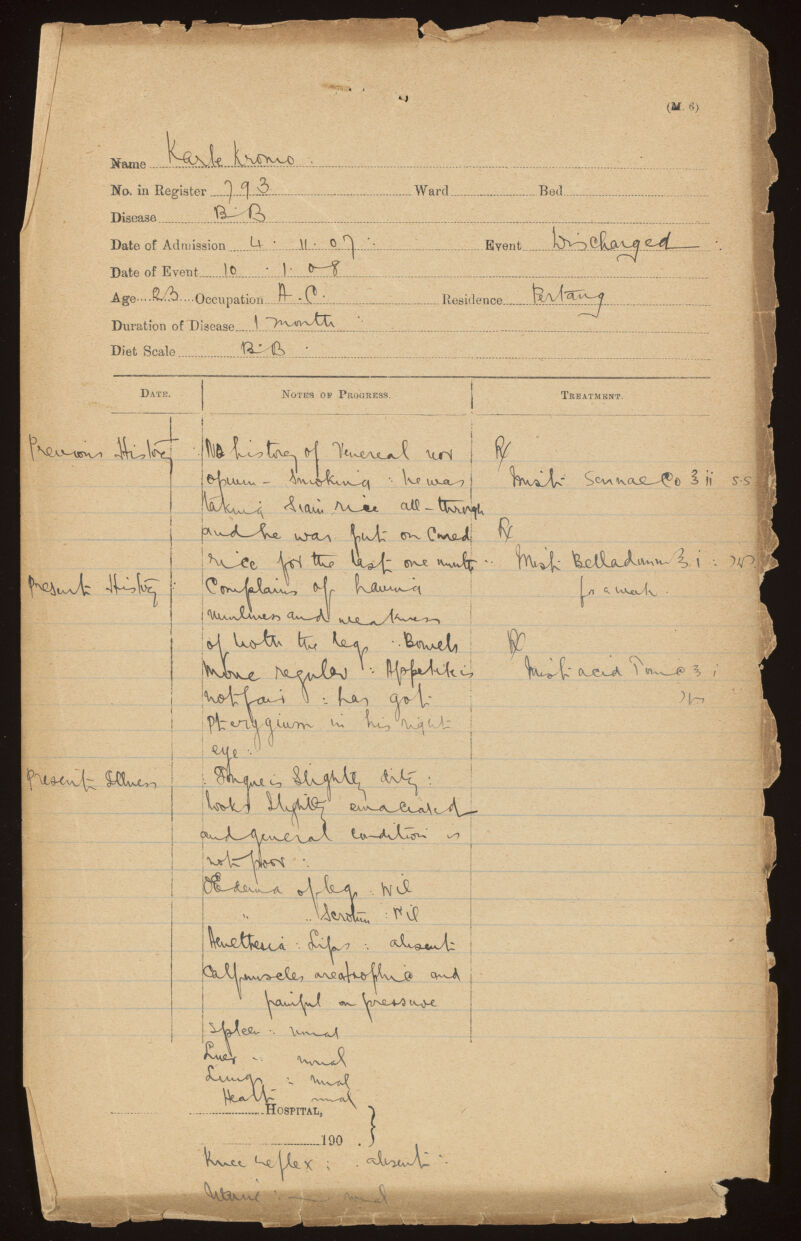 (M. 6)
Name Karte Kromo
No. in Register 793 Ward Bed
Disease B B
Date of Admission 4. 11. 07 Event Discharged
Date of Event 10. 1. 08
Age 23 Occupation A.C. Residence Pertang
Duration of Disease 1 month
Diet Scale B B
DATE. NOTES OF PROGRESS. TREATMENT.
Previous History No history of Venereal nor ℞
opium-smoking : he was Mist Sennae Co ʒ ii s s
taking Siam rice all-through
and he was put on Cured ℞
rice for the last one month Mist Belladonna ʒ i :
Present History Complains of having for a week.
numbness and weakness
of both the legs. Bowels ℞
move regular : Appetite is Mist acid Tonic ʒ i
not fair : has got
Pterygium in his right
eye :
Present Illness : Tongue is slightly dirty :
looks slightly emaciated
and general condition is
not poor :
Œdema of leg : Nil
" " Scrotum : Nil
Anesthesia : Lips : absent
Calf muscles are atrophic and
painful on pressure
Spleen : normal
Liver : normal
Lungs : normal
Heart normal
HOSPITAL,
190 .
Knee reflex : absent :